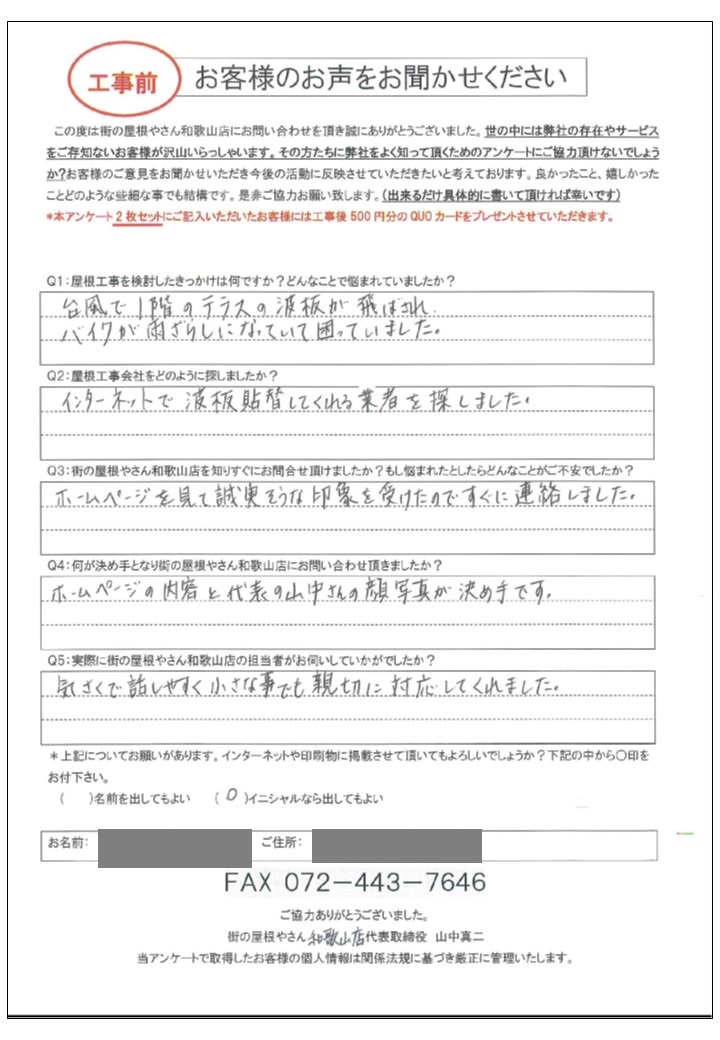 工事前
お客様のお声をお聞かせください
この度は街の屋根やさん和歌山店にお問い合わせを頂き誠にありがとうございました。世の中には弊社の存在やサービス
をご存知ないお客様が沢山いらっしゃいます。その方たちに弊社をよく知って頂くためのアンケートにご協力頂けないでしょう
か?お客様のご意見をお聞かせいただき今後の活動に反映させていただきたいと考えております。良かったこと、嬉しかった
ことどのような些細な事でも結構です。是非ご協力お願い致します。(出来るだけ具体的に書いて頂ければ幸いです)
*本アンケート2枚セットにご記入いただいたお客様には工事後500円分のQUOカードをプレゼントさせていただきます。
Q1:屋根工事を検討したきっかけは何ですか?どんなことで悩まれていましたか?
台風で1階のテラスの波板が飛ばされ、
バイクが雨ざらしになっていて困っていました。
Q2:屋根工事会社をどのように探しましたか?
インターネットで波板貼替してくれる業者を探しました。
Q3:街の屋根やさん和歌山店を知りすぐにお問合せ頂けましたか?もし悩まれたとしたらどんなことがご不安でしたか?
ホームページを見て誠実そうな印象を受けたのですぐに連絡しました。
Q4:何が決め手となり街の屋根やさん和歌山店にお問い合わせ頂きましたか?
ホームページの内容と代表の山中さんの顔写真が決め手です。
Q5:実際に街の屋根やさん和歌山店の担当者がお伺いしていかがでしたか?
気さくで話しやすく小さな事でも親切に対応してくれました。
*上記についてお願いがあります。インターネットや印刷物に掲載させて頂いてもよろしいでしょうか?下記の中から〇印を
お付下さい。
( )名前を出してもよい (〇)イニシャルなら出してもよい
お名前: ご住所:
FAX 072-443-7646
ご協力ありがとうございました。
街の屋根やさん和歌山店代表取締役 山中真二
当アンケートで取得したお客様の個人情報は関係法規に基づき厳正に管理いたします。